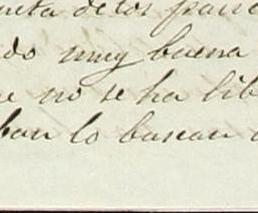 neta de los pane
do muy buena
e no se ha lib
ban lo buscan